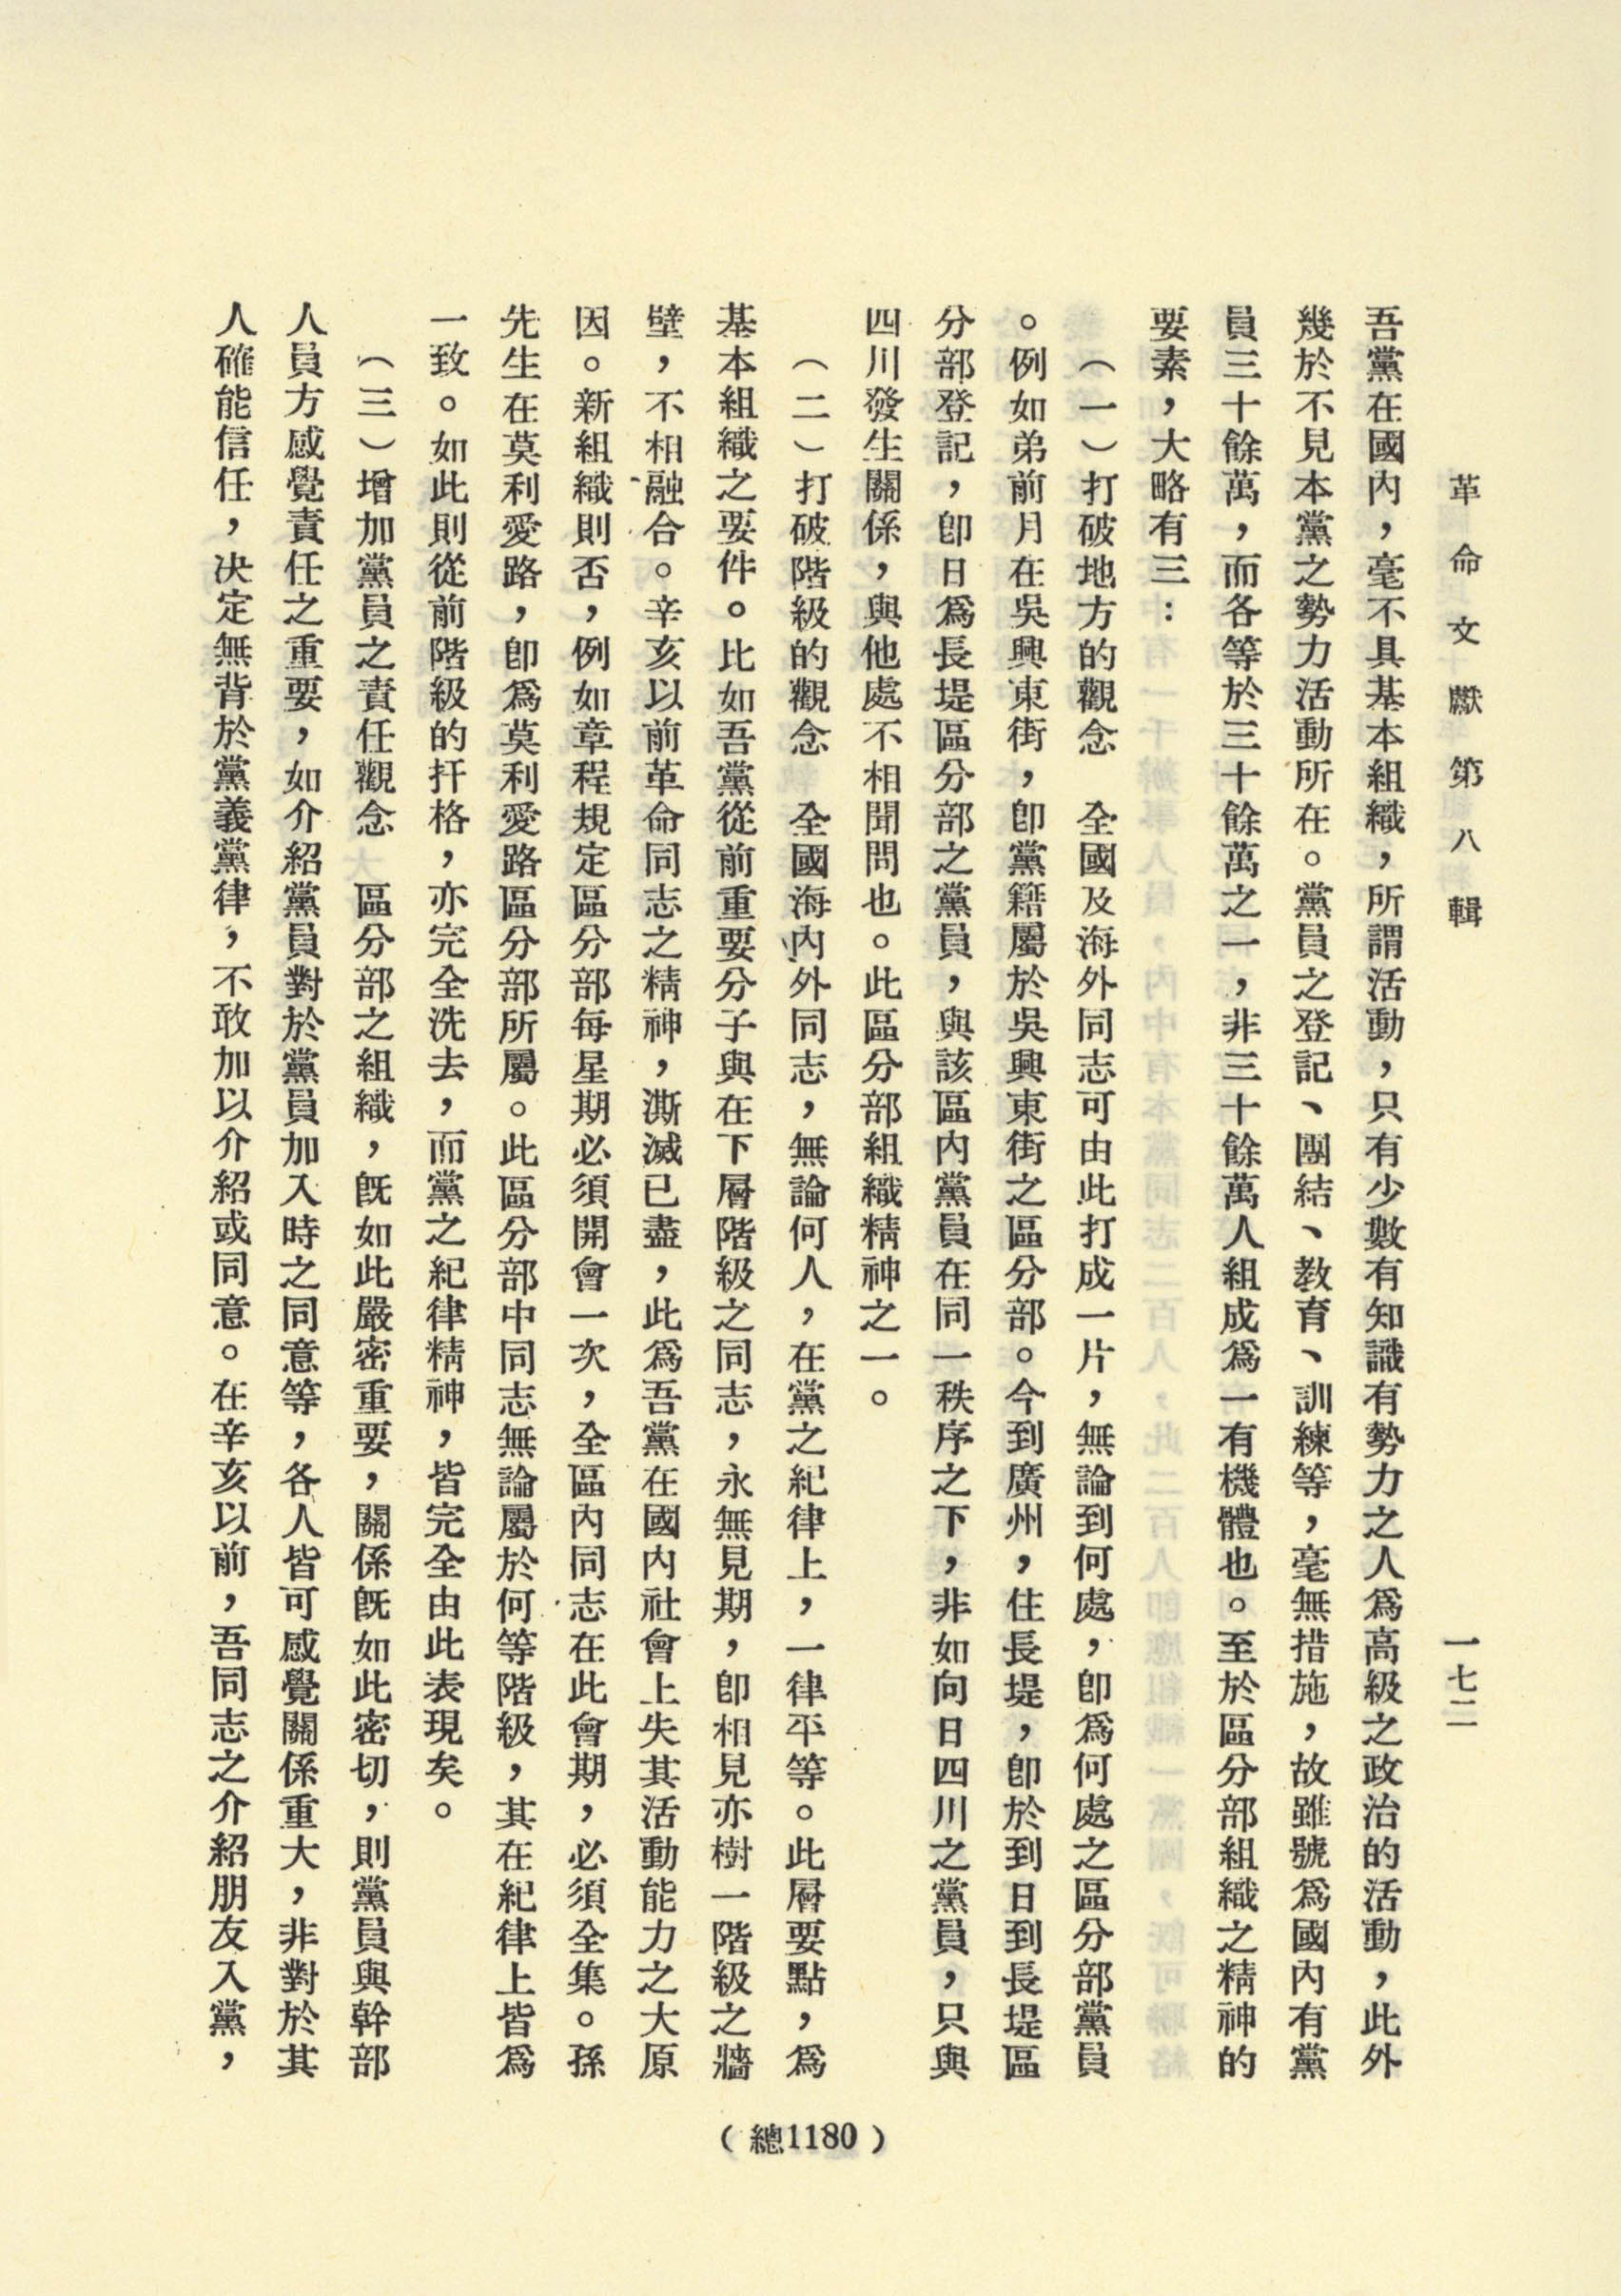 革命文獻第八輯
一七二
吾黨在國內，毫不具基本組織，所謂活動，只有少數有知識有勢力之人爲高級之政治的活動，此外
幾於不見本黨之勢力活動所在。黨員之登記、團結、教育、訓練等，毫無措施，故雖號爲國內有黨
員三十餘萬，而各等於三十餘萬之一，非三十餘萬人組成爲一有機體也。至於區分部組織之精神的
要素，大略有三：
（一）打破地方的觀念　全國及海外同志可由此打成一片，無論到何處，卽爲何處之區分部黨員
。例如弟前月在吳興東街，卽黨籍屬於吳興東街之區分部。今到廣州，住長堤，卽於到日到長堤區
分部登記，卽日爲長堤區分部之黨員，與該區內黨員在同一秩序之下，非如向日四川之黨員，只與
四川發生關係，與他處不相聞問也。此區分部組織精神之一。
（二）打破階級的觀念　全國海內外同志，無論何人，在黨之紀律上，一律平等。此層要點，爲
基本組織之要件。比如吾黨從前重要分子與在下層階級之同志，永無見期，卽相見亦樹一階級之牆
壁，不相融合。辛亥以前革命同志之精神，澌滅已盡，此爲吾黨在國內社會上失其活動能力之大原
因。新組織則否，例如章程規定區分部每星期必須開會一次，全區內同志在此會期，必須全集。孫
先生在莫利愛路，卽爲莫利愛路區分部所屬。此區分部中同志無論屬於何等階級，其在紀律上皆爲
一致。如此則從前階級的扞格，亦完全洗去，而黨之紀律精神，皆完全由此表現矣。
（三）增加黨員之責任觀念　區分部之組織，旣如此嚴密重要，關係旣如此密切，則黨員與幹部
人員方感覺責任之重要，如介紹黨員對於黨員加入時之同意等，各人皆可感覺關係重大，非對於其
人確能信任，決定無背於黨義黨律，不敢加以介紹或同意。在辛亥以前，吾同志之介紹朋友入黨，
（總1180）